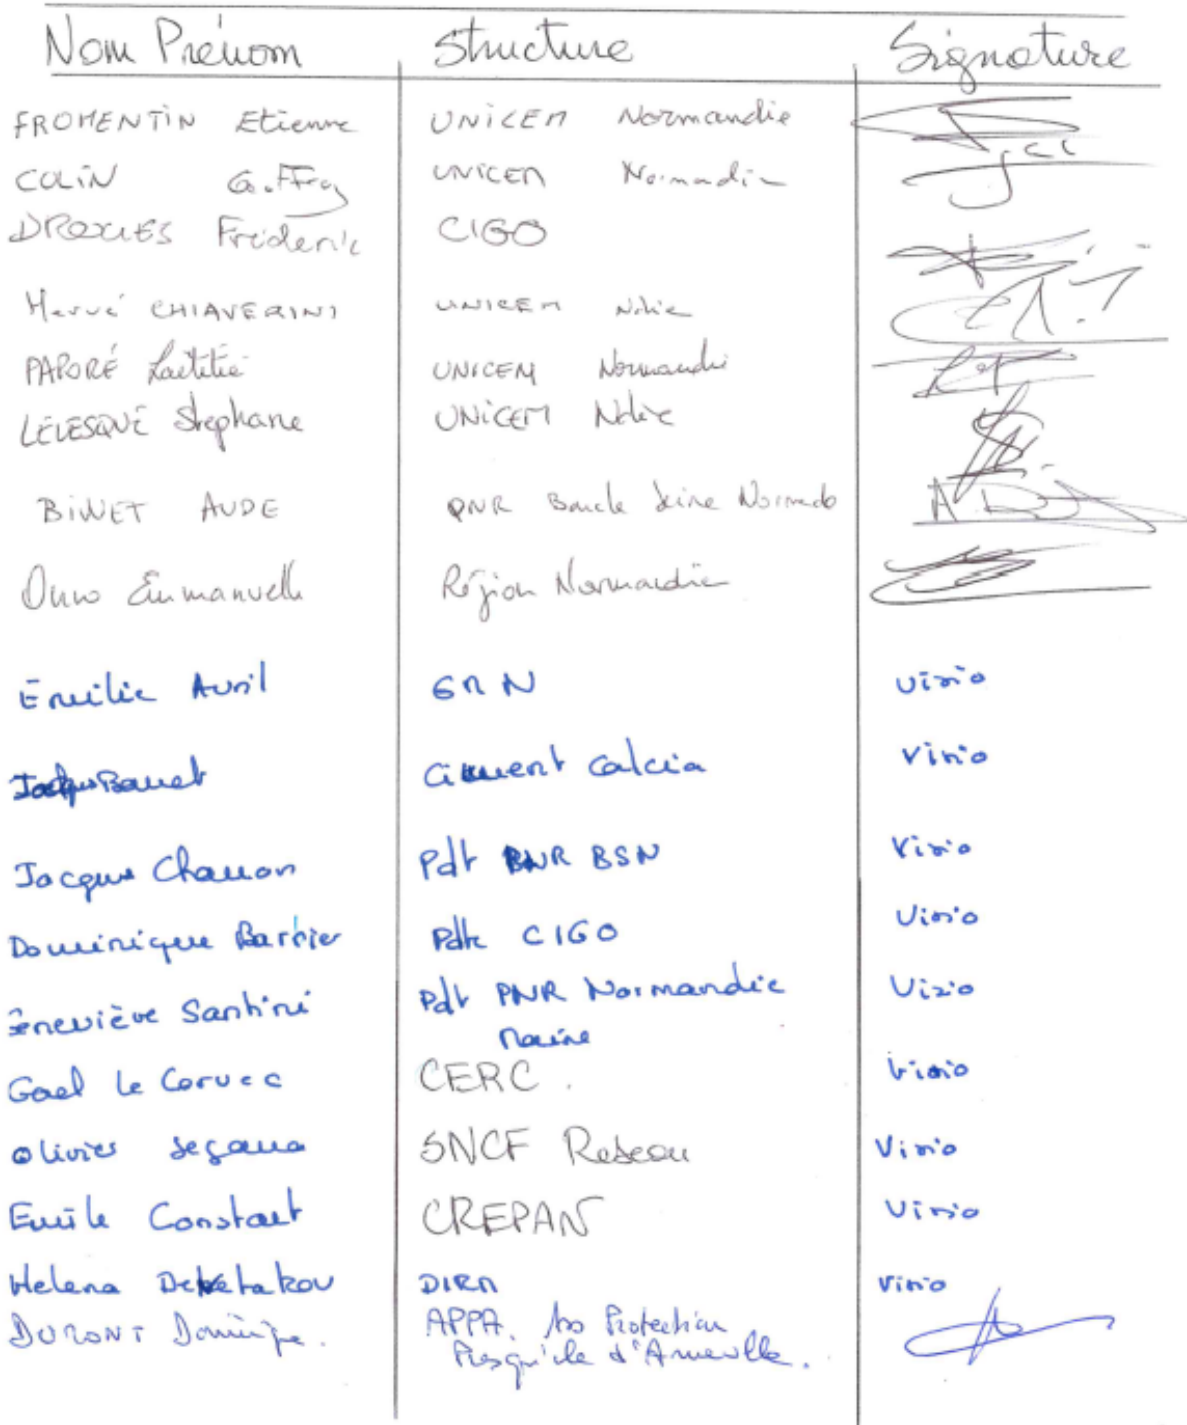 Nom Prénom Structure Signature
FROMENTIN Etienne UNICEM Normandie
COLIN Geoffroy UNICEM Normandie
Frédéric CIGO
Hervé CHIAVERINI UNICEM Ndie
PAPORÉ Laetitia UNICEM Normandie
LEVESQUE Stephane UNICEM Ndie
BINET AUDE PNR Boucle Seine Normande
Onno Emmanuelle Région Normandie
Emilie Avril GRN Visio
Ciment Calcia Visio
Jacques Pdt PNR BSN Visio
Dominique Barbier Pdte CIGO Visio
Geneviève Santini Pdt PNR Normandie Visio
Maine
Gael Le CERC. Visio
Olivier SNCF Reseau Visio
Emile Constant CREPAN Visio
Helena DIRM Visio
Dominique. APPA. Protection
Presqu'ile d'Anneville.